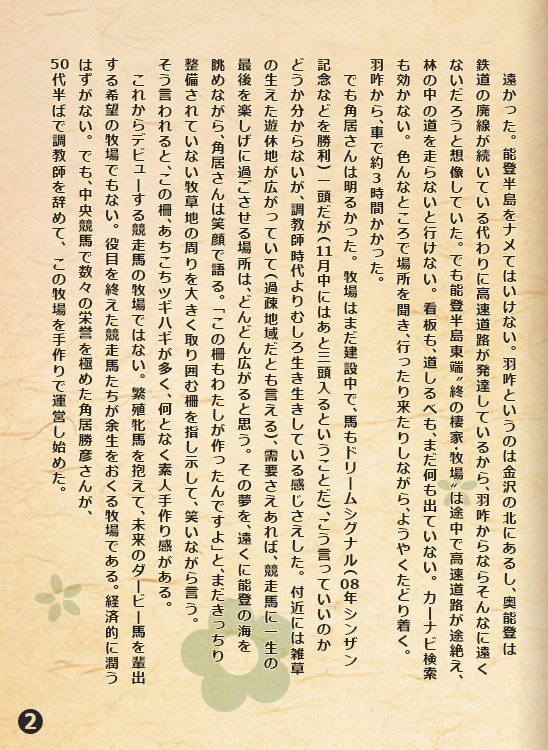 遠かった。能登半島をナメてはいけない。羽咋というのは金沢の北にあるし、奥能登は
鉄道の廃線が続いている代わりに高速道路が発達しているから、羽咋からならそんなに遠く
ないだろうと想像していた。でも能登半島東端〝終の棲家・牧場〟は途中で高速道路が途絶え、
林の中の道を走らないと行けない。看板も、道しるべも、まだ何も出ていない。カーナビ検索
も効かない。色んなところで場所を聞き、行ったり来たりしながら、ようやくたどり着く。
羽咋から、車で約3時間かかった。
でも角居さんは明るかった。牧場はまだ建設中で、馬もドリームシグナル（08年シンザン
記念などを勝利）一頭だが（11月中にはあと三頭入るということだ）、こう言っていいのか
どうか分からないが、調教師時代よりむしろ生き生きしている感じさえした。付近には雑草
の生えた遊休地が広がっていて（過疎地域だとも言える）、需要さえあれば、競走馬に一生の
最後を楽しげに過ごさせる場所は、どんどん広がると思う。その夢を、遠くに能登の海を
眺めながら、角居さんは笑顔で語る。「この柵もわたしが作ったんですよ」と、まだきっちり
整備されていない牧草地の周りを大きく取り囲む柵を指し示して、笑いながら言う。
そう言われると、この柵、あちこちツギハギが多く、何となく素人手作り感がある。
これからデビューする競走馬の牧場ではない。繁殖牝馬を抱えて、未来のダービー馬を輩出
する希望の牧場でもない。役目を終えた競走馬たちが余生をおくる牧場である。経済的に潤う
はずがない。でも、中央競馬で数々の栄誉を極めた角居勝彦さんが、
50代半ばで調教師を辞めて、この牧場を手作りで運営し始めた。
2